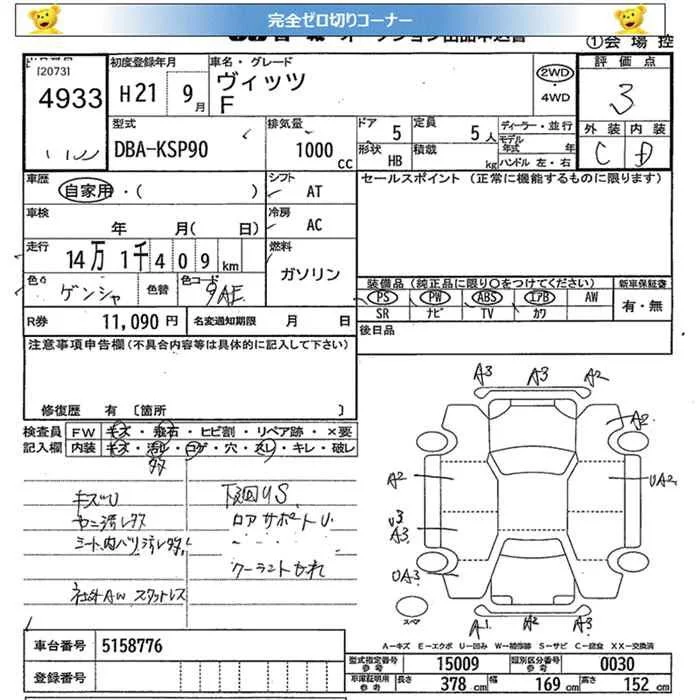 完全ゼロ切りコーナー
①会場控
[2073]
4933
初度登録年月
H21 9月
車名・グレード
ヴィッツ
F
2WD
・
4WD
評価点
3
外装 内装
C D
型式
DBA-KSP90
排気量
1000cc
ドア 5
定員 5人
形状 HB
積載 kg
ディーラー・並行
モデル年式 年
ハンドル 左・右
車歴
自家用・( )
シフト
AT
セールスポイント (正常に機能するものに限ります)
車検
年 月(日)
冷房
AC
走行
14万1千409km
燃料
ガソリン
色替
色コード
装備品 (純正品に限り○をつけてください)
新車保証書
PS PW ABS エアB AW
SR ナビ TV カワ
有・無
R券 11,090円
名変通知期限 月 日
後日品
注意事項申告欄 (不具合内容等は具体的に記入して下さい)
修復歴 有 〔箇所 〕
検査員記入欄
FW キズ・飛石・ヒビ割・リペア跡・×要
内装 キズ・汚レ・コゲ・穴・スレ・キレ・破レ
キズU
下廻りS
ロアサポートU
A3 A3 A2
A2
A2
UA2
U3
A3
UA3
A3
A1 A2 A3
スペア
A-キズ E-エクボ U-凹み W-補修跡 S-サビ C-腐食 XX-交換済
車台番号 5158776
登録番号
型式指定番号参考 15009
類別区分番号参考 0030
車庫証明用参考
長さ 378cm
幅 169cm
高さ 152cm